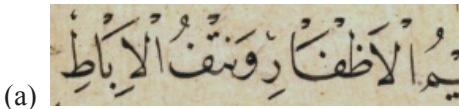 (a) يمُ الْاَظْفَارِ وَنَتْفُ الْاِبَاطِ